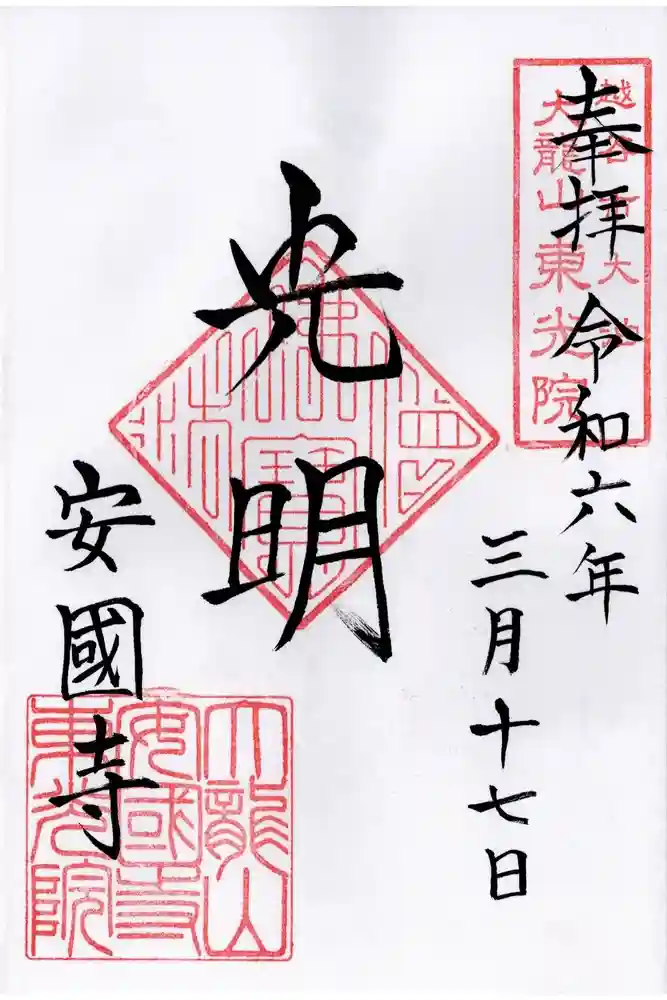 奉拝 令和六年
三月十七日
越谷市大泊
大龍山東光院
光明
佛法僧寶
安國寺
大龍山
安國寺
東光院